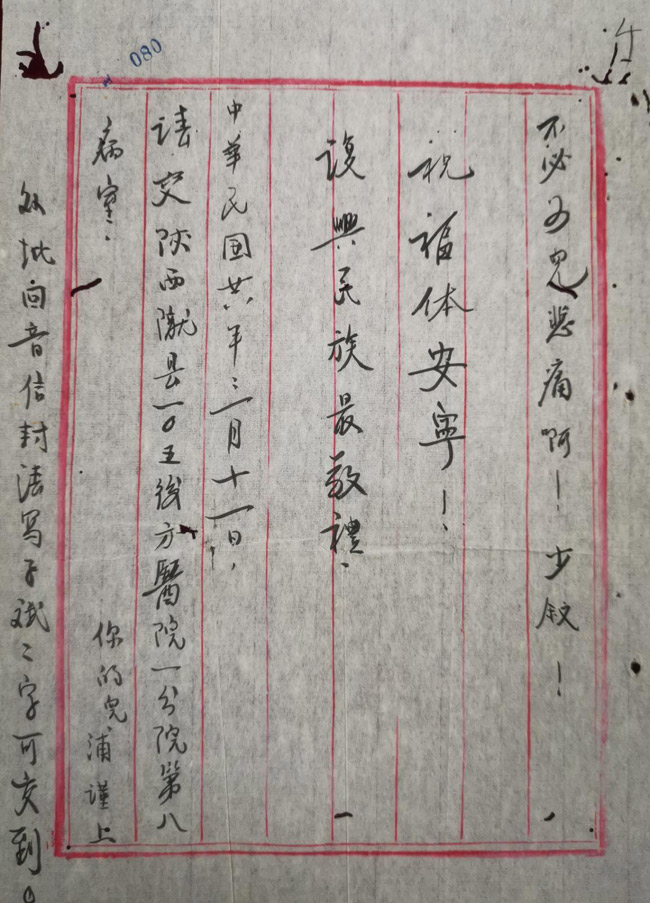 不必为兒悲痛啊！少敘！
祝福体安寧！
復興民族最敬禮.
中華民国廿八年三月十一日.
請交陝西隴县一0五後方醫院一分院第八
病室.
你的兒浦謹上
回音信封請写子斌二字可交到。
080